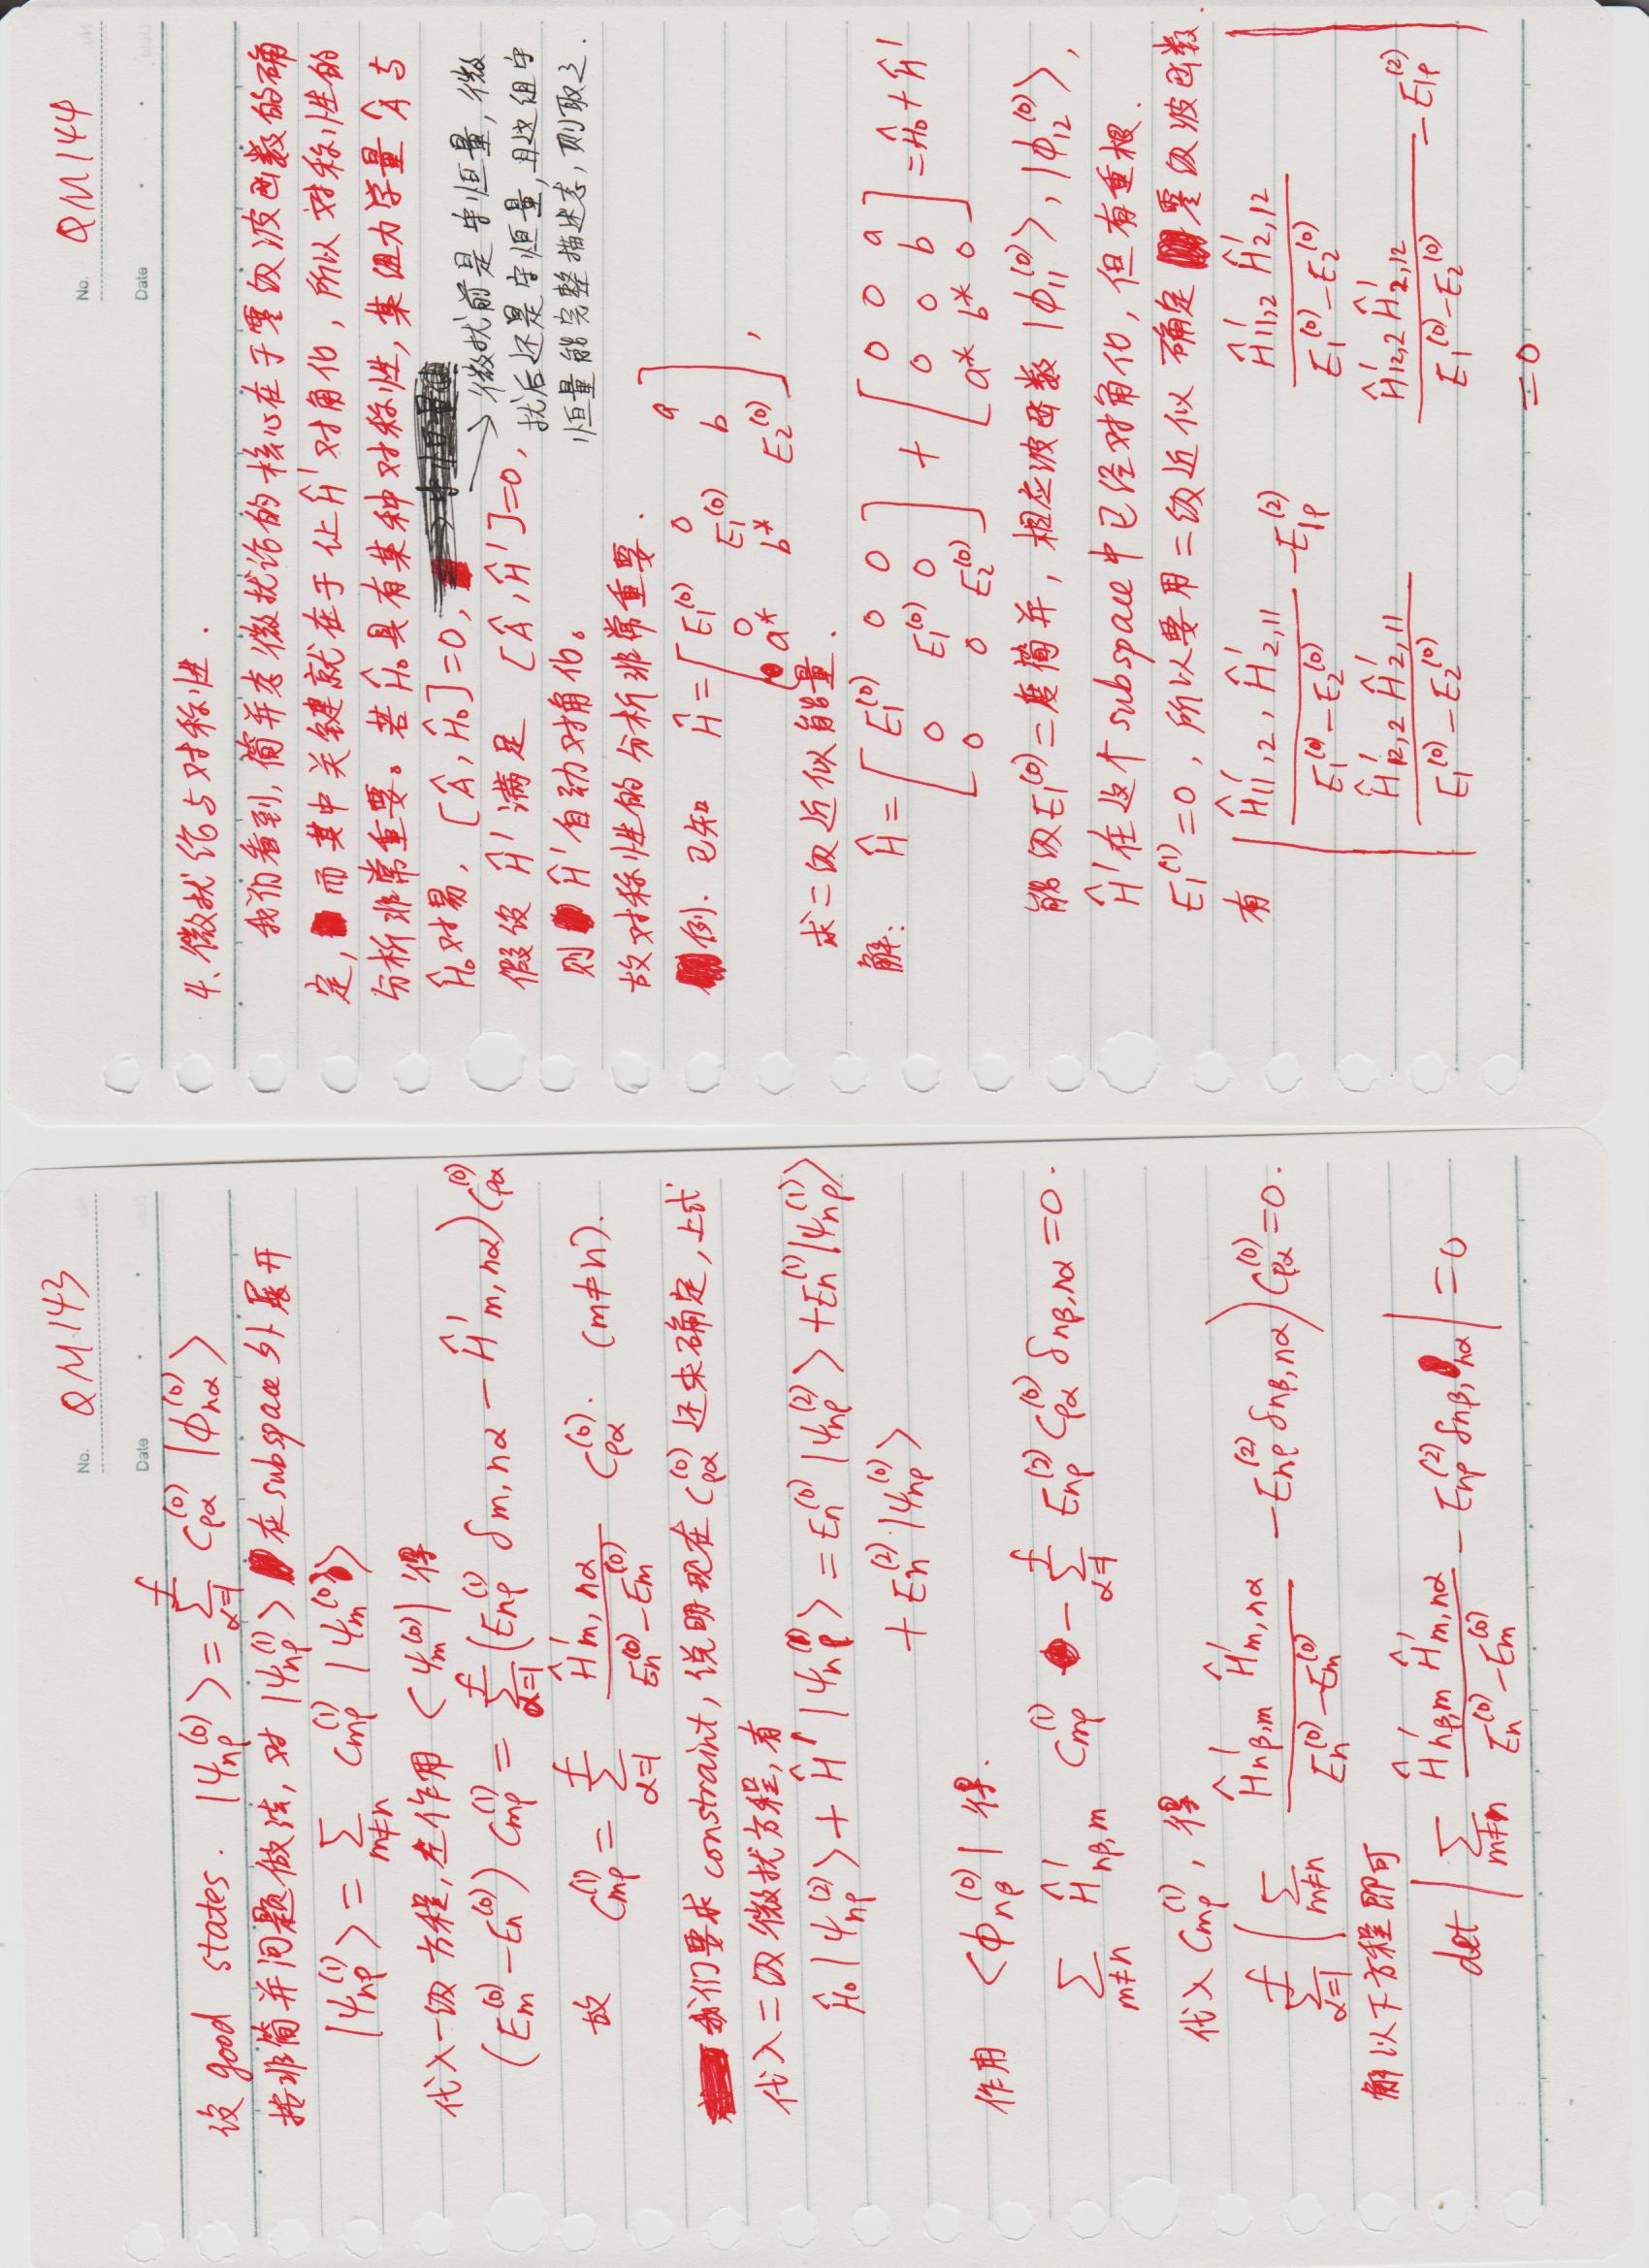 No. QM143
Date
设 good states. |ψ_{nρ}^{(0)}⟩ = Σ_{α=1}^{f} C_{ρα}^{(0)} |ϕ_{nα}^{(0)}⟩
按非简并问题做法, 对 |ψ_{nρ}^{(1)}⟩ 在 subspace 外展开
|ψ_{nρ}^{(1)}⟩ = Σ_{m≠n} C_{mρ}^{(1)} |ψ_m^{(0)}⟩
代入一级方程, 左作用 ⟨ψ_m^{(0)}| 得
(E_m^{(0)} − E_n^{(0)}) C_{mρ}^{(1)} = Σ_{α=1}^{f} (E_{nρ}^{(1)} δ_{m,nα} − Ĥ'_{m,nα}) C_{ρα}^{(0)}
故 C_{mρ}^{(1)} = Σ_{α=1}^{f} \frac{Ĥ'_{m,nα}}{E_n^{(0)} − E_m^{(0)}} C_{ρα}^{(0)}. (m≠n).
我们要求 constraint, 说明现在 C_{ρα}^{(0)} 还未确定, 上式
代入二级微扰方程, 有
Ĥ_0 |ψ_{nρ}^{(2)}⟩ + Ĥ' |ψ_{nρ}^{(1)}⟩ = E_n^{(0)} |ψ_{nρ}^{(2)}⟩ + E_n^{(1)} |ψ_{nρ}^{(1)}⟩
+ E_n^{(2)} |ψ_{nρ}^{(0)}⟩
作用 ⟨ϕ_{nβ}^{(0)}| 得.
Σ_{m≠n} Ĥ'_{nβ,m} C_{mρ}^{(1)} − Σ_{α=1}^{f} E_{nρ}^{(2)} C_{ρα}^{(0)} δ_{nβ,nα} = 0.
代入 C_{mρ}^{(1)}, 得
Σ_{α=1}^{f} ( Σ_{m≠n} \frac{Ĥ'_{nβ,m} Ĥ'_{m,nα}}{E_n^{(0)} − E_m^{(0)}} − E_{nρ}^{(2)} δ_{nβ,nα} ) C_{ρα}^{(0)} = 0.
解以下方程即可
det | Σ_{m≠n} \frac{Ĥ'_{nβ,m} Ĥ'_{m,nα}}{E_n^{(0)} − E_m^{(0)}} − E_{nρ}^{(2)} δ_{nβ,nα} | = 0
No. QM144
Date
4. 微扰论与对称性.
我们看到, 简并态微扰论的核心在于零级波函数的确
定, 而其中关键就在于让 Ĥ' 对角化, 所以对称性的
分析非常重要。若 Ĥ_0 具有某种对称性, 某组力学量 Â 与
Ĥ_0 对易, [Â, Ĥ_0] = 0,
→ 微扰前是守恒量, 微
扰后还是守恒量, 且这组守
恒量能完整描述态, 则取之.
假设 Ĥ' 满足 [Â, Ĥ'] = 0,
则 Ĥ' 自动对角化。
故对称性的分析非常重要.
例. 已知 Ĥ = [ E_1^{(0)} 0 a
0 E_1^{(0)} b
a* b* E_2^{(0)} ],
求二级近似能量.
解: Ĥ = [ E_1^{(0)} 0 0 ; 0 E_1^{(0)} 0 ; 0 0 E_2^{(0)} ] + [ 0 0 a ; 0 0 b ; a* b* 0 ] = Ĥ_0 + Ĥ'
能级 E_1^{(0)} 二度简并, 相应波函数 |ϕ_{11}^{(0)}⟩, |ϕ_{12}^{(0)}⟩,
Ĥ' 在这个 subspace 中已经对角化, 但有重根.
E_1^{(1)} = 0, 所以要用二级近似确定零级波函数.
有 | \frac{Ĥ'_{11,2}, Ĥ'_{2,11}}{E_1^{(0)} − E_2^{(0)}} − E_{1ρ}^{(2)} \frac{Ĥ'_{11,2} Ĥ'_{2,12}}{E_1^{(0)} − E_2^{(0)}} |
| \frac{Ĥ'_{12,2} Ĥ'_{2,11}}{E_1^{(0)} − E_2^{(0)}} \frac{Ĥ'_{12,2} Ĥ'_{2,12}}{E_1^{(0)} − E_2^{(0)}} − E_{1ρ}^{(2)} |
= 0